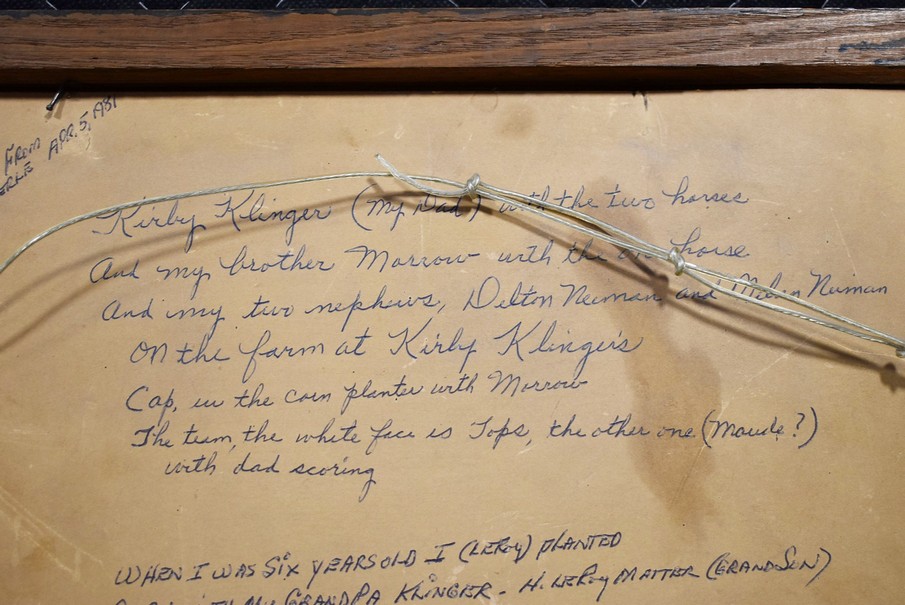 From APR. 5, 1981
Kirby Klinger (my Dad) with the two horses
And my brother Morrow with the on horse
And my two nephews, Delton Neuman and Melvin Neuman
on the farm at Kirby Klinger's
Cap, in the corn planter with Morrow
The team, the white face is Tops, the other one (Maude?)
with dad scoring
WHEN I WAS SIX YEARS OLD I (LEROY) PLANTED
GRANDPA KLINGER - H. LEROY MATTER (GRANDSON)